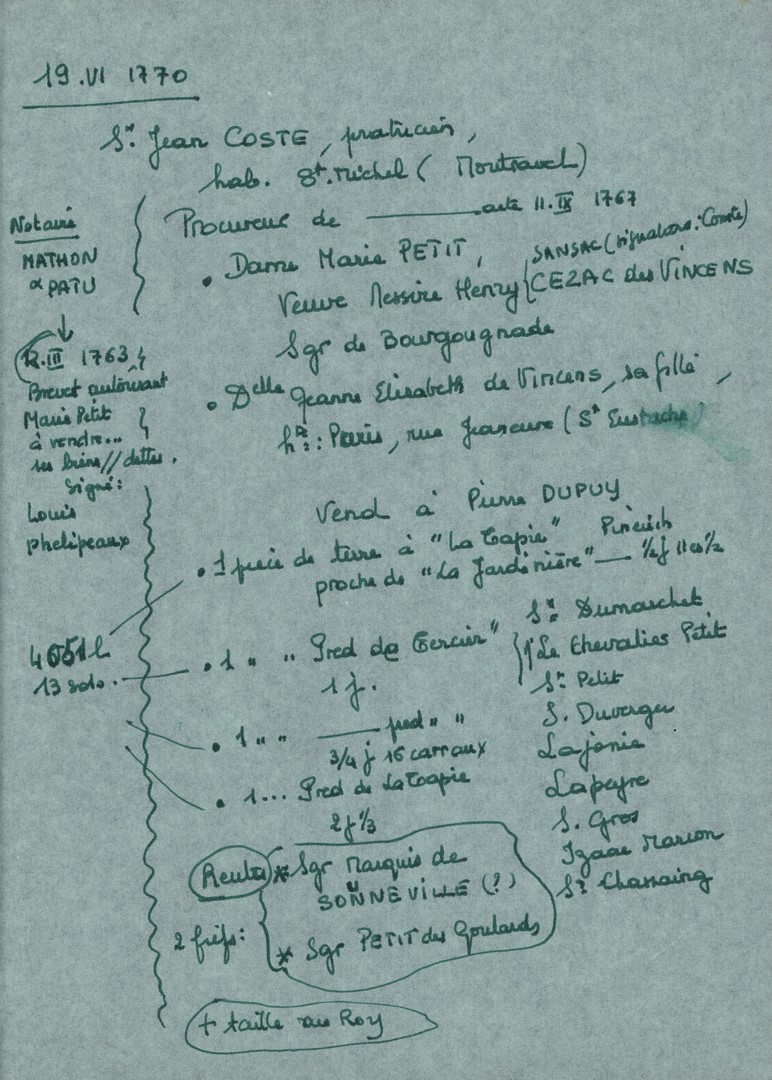 19.VI 1770
Sr. Jean COSTE, praticien,
hab. St. Michel (Montravel)
Procureur de ——— acte 11.IX 1767
• Dame Marie PETIT,
Veuve Messire Henry { SANSAC (signature: Comte)
CEZAC des VINCENS
Sgr de Bourgougnade
• Delle Jeanne Elisabeth de Vincens, sa fille,
hte: Paris, rue (St Eustache)
Notaire
MATHON
& PATU
12.III 1763
Brevet autorisant
Marie Petit
à vendre...
ses biens // dettes.
Signé:
Louis
Phelipeaux
Vend à Pierre DUPUY
• 1 pièce de terre à "La Tapie"
proche de "La Jardinière" — 1/2 j 11 es 1/2
4051 l
13 sols.
• 1 " " Pred de Tercier"
1 j.
• 1 " " ——— pred " "
3/4 j 16 carraux
• 1... Pred de La Toapie
2 j 1/3
Sr. Dumarchet
Le Chevalier Petit
Sr. Petit
S. Duverger
Lajonie
Lapeyre
S. Gros
Izaac Marcon
Sr Chassaing
Rente
* Sgr Marquis de
SONNEVILLE (?)
2 fiefs:
* Sgr PETIT des Goulards
+ taille au Roy